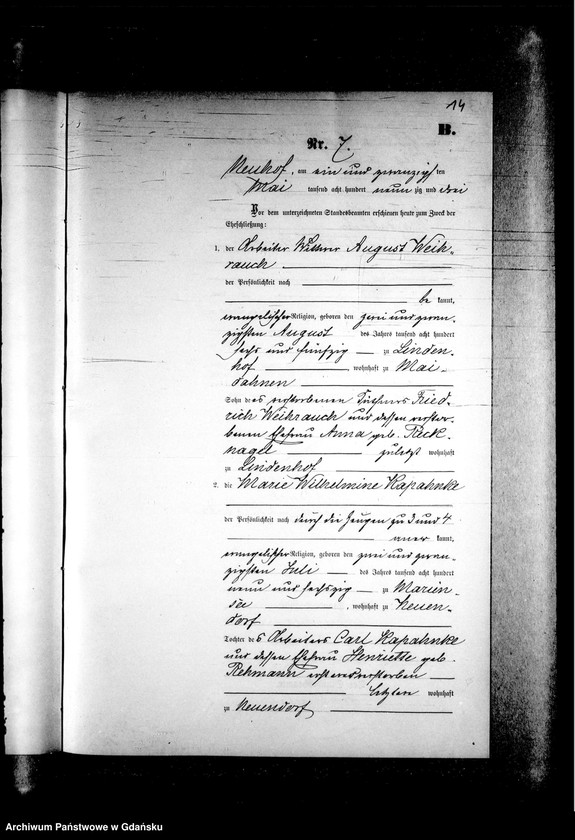 14
B.
Nr. 7.
Neuhof, am ein und zwanzigsten
Mai tausend acht hundert neun zig und drei
Vor dem unterzeichneten Standesbeamten erschienen heute zum Zweck der
Eheschließung:
1. der Arbeiter Wittwer August Weih-
rauch
der Persönlichkeit nach
be kannt,
evangelischer Religion, geboren den zwei und zwan-
zigsten August des Jahres tausend acht hundert
sechs und fünfzig zu Linden-
hof, wohnhaft zu Mai-
dahnen
Sohn des verstorbenen Fried-
rich Weihrauch und dessen verstor-
benen Ehefrau Anna geb. Reck-
nagel zuletzt wohnhaft
zu Lindenhof
2. die Marie Wilhelmine Kapahnke
der Persönlichkeit nach durch die Zeugen zu 3 und 4
aner kannt,
evangelischer Religion, geboren den zwei und zwan-
zigsten Juli des Jahres tausend acht hundert
neun und sechszig zu Marien-
see, wohnhaft zu Neuen-
dorf
Tochter des Arbeiters Carl Kapahnke
und dessen Ehefrau Henriette geb.
Rehmann ersterer verstorben
letztere wohnhaft
zu Neuendorf
Archiwum Państwowe w Gdańsku